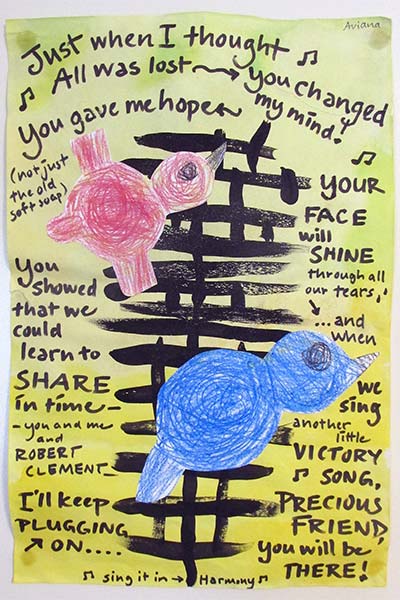 Aviana
Just when I thought
All was lost → you changed
my mind!
You gave me hope
(not just
the old
soft soap)
You
showed
that we
could
learn to
SHARE
in time –
– you and me
and
ROBERT
CLEMENT –
I'll keep
PLUGGING
↗ ON....
♫
YOUR
FACE
will
SHINE
through all
our tears,
...and
when
we
sing
another
little
VICTORY
♫ SONG,
PRECIOUS
FRIEND,
you will be
THERE!
♫ sing it in → Harmony ♫